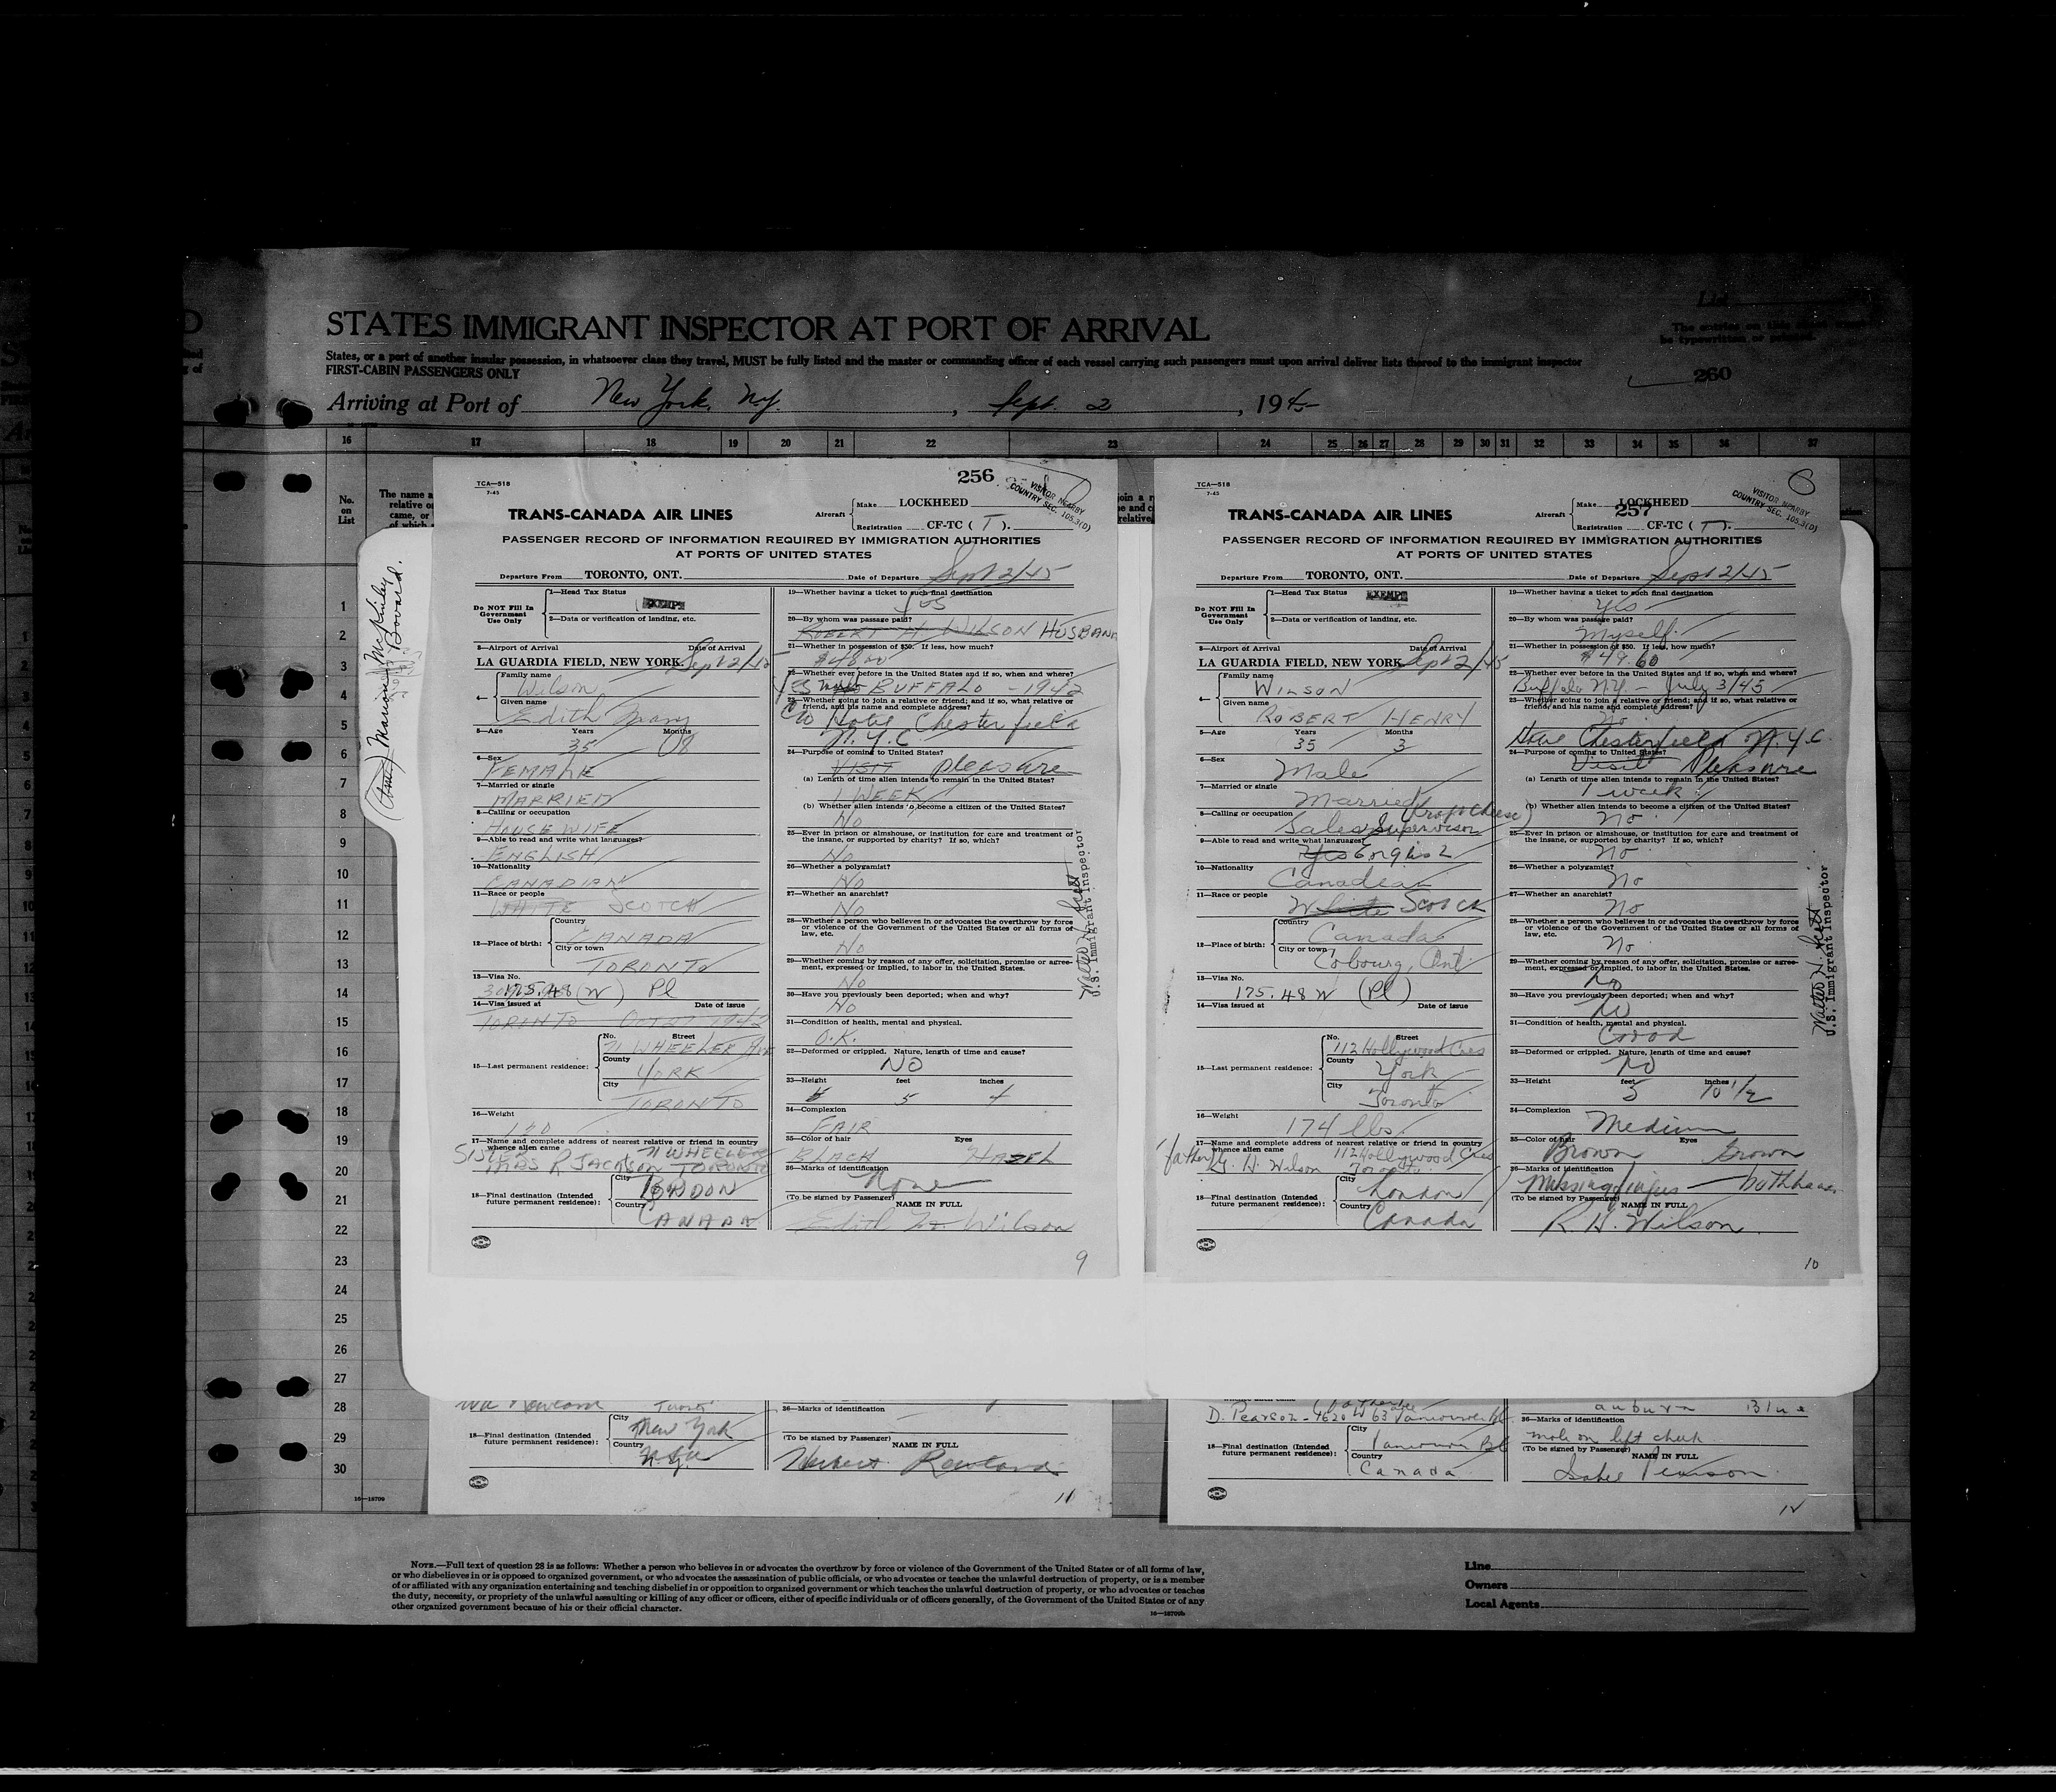 STATES IMMIGRANT INSPECTOR AT PORT OF ARRIVAL
States, or a part of another insular possession, in whatsoever class they travel, MUST be fully listed and the master or commanding officer of each vessel carrying such passengers must upon arrival deliver lists thereof to the immigrant inspector
FIRST-CABIN PASSENGERS ONLY
List
The entries on this sheet must
be typewritten or printed.
260
Arriving at Port of New York, Ny. , Sept. 2 , 1945
16 17 18 19 20 21 22 23 24 25 26 27 28 29 30 31 32 33 34 35 36 37
No.
on
List
The name a
relative o
came, or
of which
1
2
3
4
5
6
7
8
9
10
11
12
13
14
15
16
17
18
19
20
21
22
23
24
25
26
27
28
29
30
(Amer) Marion McKinley
Bovard.
TCA—518
7-45
256
VISITOR NEARBY
COUNTRY SEC. 105.3(D)
TRANS-CANADA AIR LINES
Aircraft
Make LOCKHEED
Registration CF-TC ( T ).
PASSENGER RECORD OF INFORMATION REQUIRED BY IMMIGRATION AUTHORITIES
AT PORTS OF UNITED STATES
Departure From TORONTO, ONT. Date of Departure Sept 2/45
Do NOT Fill In
Government
Use Only
1—Head Tax Status
EXEMPT
2—Data or verification of landing, etc.
3—Airport of Arrival Date of Arrival
LA GUARDIA FIELD, NEW YORK Sept 2/45
4—
Family name
Wilson
Given name
Edith Mary
5—Age Years Months
35 08
6—Sex
FEMALE
7—Married or single
MARRIED
8—Calling or occupation
HOUSEWIFE
9—Able to read and write what languages?
ENGLISH
10—Nationality
CANADIAN
11—Race or people
WHITE SCOTCH
12—Place of birth:
Country
CANADA
City or town
TORONTO
13—Visa No.
175.48 (W) Pl
14—Visa issued at Date of issue
TORONTO Oct 1942
15—Last permanent residence:
No. Street
71 WHEELER AVE
County
YORK
City
TORONTO
16—Weight
130
17—Name and complete address of nearest relative or friend in country
whence alien came
SISTER 71 WHEELER
MRS R JACKSON TORONTO
18—Final destination (Intended
future permanent residence):
City
LONDON
Country
CANADA
19—Whether having a ticket to such final destination
YES
20—By whom was passage paid?
ROBERT H WILSON HUSBAND
21—Whether in possession of $50. If less, how much?
$48.00
22—Whether ever before in the United States and if so, when and where?
YES BUFFALO - 1942
23—Whether going to join a relative or friend; and if so, what relative or
friend, and his name and complete address?
c/o Hotel Chesterfield
N.Y.C
24—Purpose of coming to United States?
VISIT pleasure
(a) Length of time alien intends to remain in the United States?
1 WEEK
(b) Whether alien intends to become a citizen of the United States?
NO
25—Ever in prison or almshouse, or institution for care and treatment of
the insane, or supported by charity? If so, which?
NO
26—Whether a polygamist?
NO
27—Whether an anarchist?
NO
28—Whether a person who believes in or advocates the overthrow by force
or violence of the Government of the United States or all forms of
law, etc.
NO
29—Whether coming by reason of any offer, solicitation, promise or agree-
ment, expressed or implied, to labor in the United States.
NO
30—Have you previously been deported; when and why?
NO
31—Condition of health, mental and physical.
O.K.
32—Deformed or crippled. Nature, length of time and cause?
NO
33—Height feet inches
5 4
34—Complexion
FAIR
35—Color of hair Eyes
BLACK HAZEL
36—Marks of identification
None
(To be signed by Passenger)
NAME IN FULL
Edith M. Wilson
Walter H. Scott
U.S. Immigrant Inspector
9
TCA—518
7-45
VISITOR NEARBY
COUNTRY SEC. 105.3(D)
TRANS-CANADA AIR LINES
Aircraft
Make LOCKHEED
257
Registration CF-TC ( T ).
PASSENGER RECORD OF INFORMATION REQUIRED BY IMMIGRATION AUTHORITIES
AT PORTS OF UNITED STATES
Departure From TORONTO, ONT. Date of Departure Sept 2/45
Do NOT Fill In
Government
Use Only
1—Head Tax Status
EXEMPT
2—Data or verification of landing, etc.
3—Airport of Arrival Date of Arrival
LA GUARDIA FIELD, NEW YORK Sept 2/45
4—
Family name
WILSON
Given name
ROBERT HENRY
5—Age Years Months
35 3
6—Sex
Male
7—Married or single
Married
8—Calling or occupation
Sales Supervisor
9—Able to read and write what languages?
Yes English
10—Nationality
Canadian
11—Race or people
White Scotch
12—Place of birth:
Country
Canada
City or town
Cobourg, Ont
13—Visa No.
175.48 W (Pl)
14—Visa issued at Date of issue
15—Last permanent residence:
No. Street
112 Hollywood Cres
County
York
City
Toronto
16—Weight
174 lbs.
17—Name and complete address of nearest relative or friend in country
whence alien came
(father) G. H. Wilson 112 Hollywood Cres
Toronto
18—Final destination (Intended
future permanent residence):
City
London
Country
Canada
19—Whether having a ticket to such final destination
Yes
20—By whom was passage paid?
Myself.
21—Whether in possession of $50. If less, how much?
$49.60
22—Whether ever before in the United States and if so, when and where?
Buffalo N.Y. — July 3/45
23—Whether going to join a relative or friend; and if so, what relative or
friend, and his name and complete address?
No
Hotel Chesterfield N.Y.C.
24—Purpose of coming to United States?
Visit Pleasure
(a) Length of time alien intends to remain in the United States?
1 week
(b) Whether alien intends to become a citizen of the United States?
no
25—Ever in prison or almshouse, or institution for care and treatment of
the insane, or supported by charity? If so, which?
no
26—Whether a polygamist?
no
27—Whether an anarchist?
no
28—Whether a person who believes in or advocates the overthrow by force
or violence of the Government of the United States or all forms of
law, etc.
no
29—Whether coming by reason of any offer, solicitation, promise or agree-
ment, expressed or implied, to labor in the United States.
no
30—Have you previously been deported; when and why?
no
31—Condition of health, mental and physical.
Good
32—Deformed or crippled. Nature, length of time and cause?
no
33—Height feet inches
5 10 1/2
34—Complexion
Medium
35—Color of hair Eyes
Brown Brown
36—Marks of identification
Missing fingers — both hands
(To be signed by Passenger)
NAME IN FULL
R. H. Wilson
Walter H. Scott
U.S. Immigrant Inspector
10
18—Final destination (Intended
future permanent residence):
City
New York
Country
36—Marks of identification
(To be signed by Passenger)
NAME IN FULL
Herbert Rowland
11
D. Pearson - 4620 W 63 Vancouver BC
18—Final destination (Intended
future permanent residence):
City
Vancouver BC
Country
Canada
auburn Blue
36—Marks of identification
mole on left cheek
(To be signed by Passenger)
NAME IN FULL
Isabel Pearson
12
16—18709
NOTE.—Full text of question 28 is as follows: Whether a person who believes in or advocates the overthrow by force or violence of the Government of the United States or of all forms of law,
or who disbelieves in or is opposed to organized government, or who advocates the assassination of public officials, or who advocates or teaches the unlawful destruction of property, or is a member
of or affiliated with any organization entertaining and teaching disbelief in or opposition to organized government or which teaches the unlawful destruction of property, or who advocates or teaches
the duty, necessity, or propriety of the unlawful assaulting or killing of any officer or officers, either of specific individuals or of officers generally, of the Government of the United States or of any
other organized government because of his or their official character.
16—18709b
Line
Owners
Local Agents